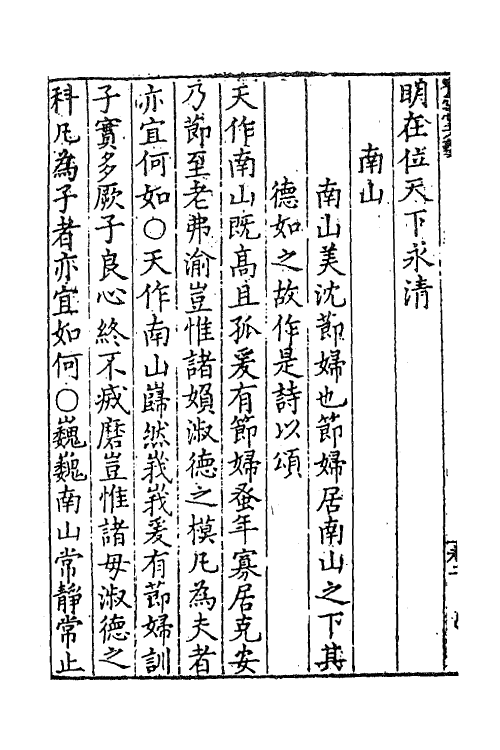 明在位天下永清
南山
南山美沈節婦也節婦居南山之下其
德如之故作是詩以頌
天作南山既高且孤爰有節婦蚤年寡居克安
乃節至老弗渝豈惟諸媍淑德之模凡為夫者
亦宜何如○天作南山巋然峩峩爰有莭婦訓
子實多厥子良心終不戚磨豈惟諸母淑德之
科凡為子者亦宜如何○巍巍南山常靜常止